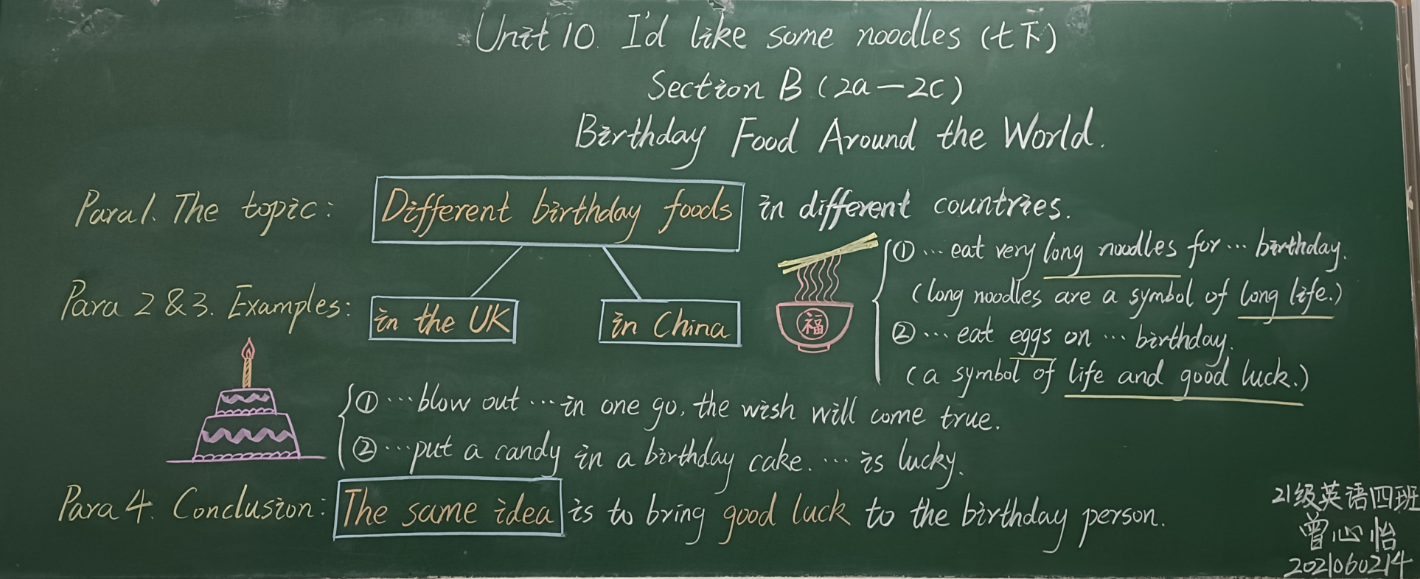 Unit 10. I'd like some noodles (七下)
Section B (2a—2c)
Birthday Food Around the World.
Para1. The topic: Different birthday foods in different countries.
Para 2 & 3. Examples: in the UK in China
福
① ... eat very long noodles for ... birthday.
(long noodles are a symbol of long life.)
② ... eat eggs on ... birthday.
(a symbol of life and good luck.)
① ... blow out ... in one go, the wish will come true.
② ... put a candy in a birthday cake. ... is lucky.
Para 4. Conclusion: The same idea is to bring good luck to the birthday person.
21级英语四班
曾心怡
2021060214